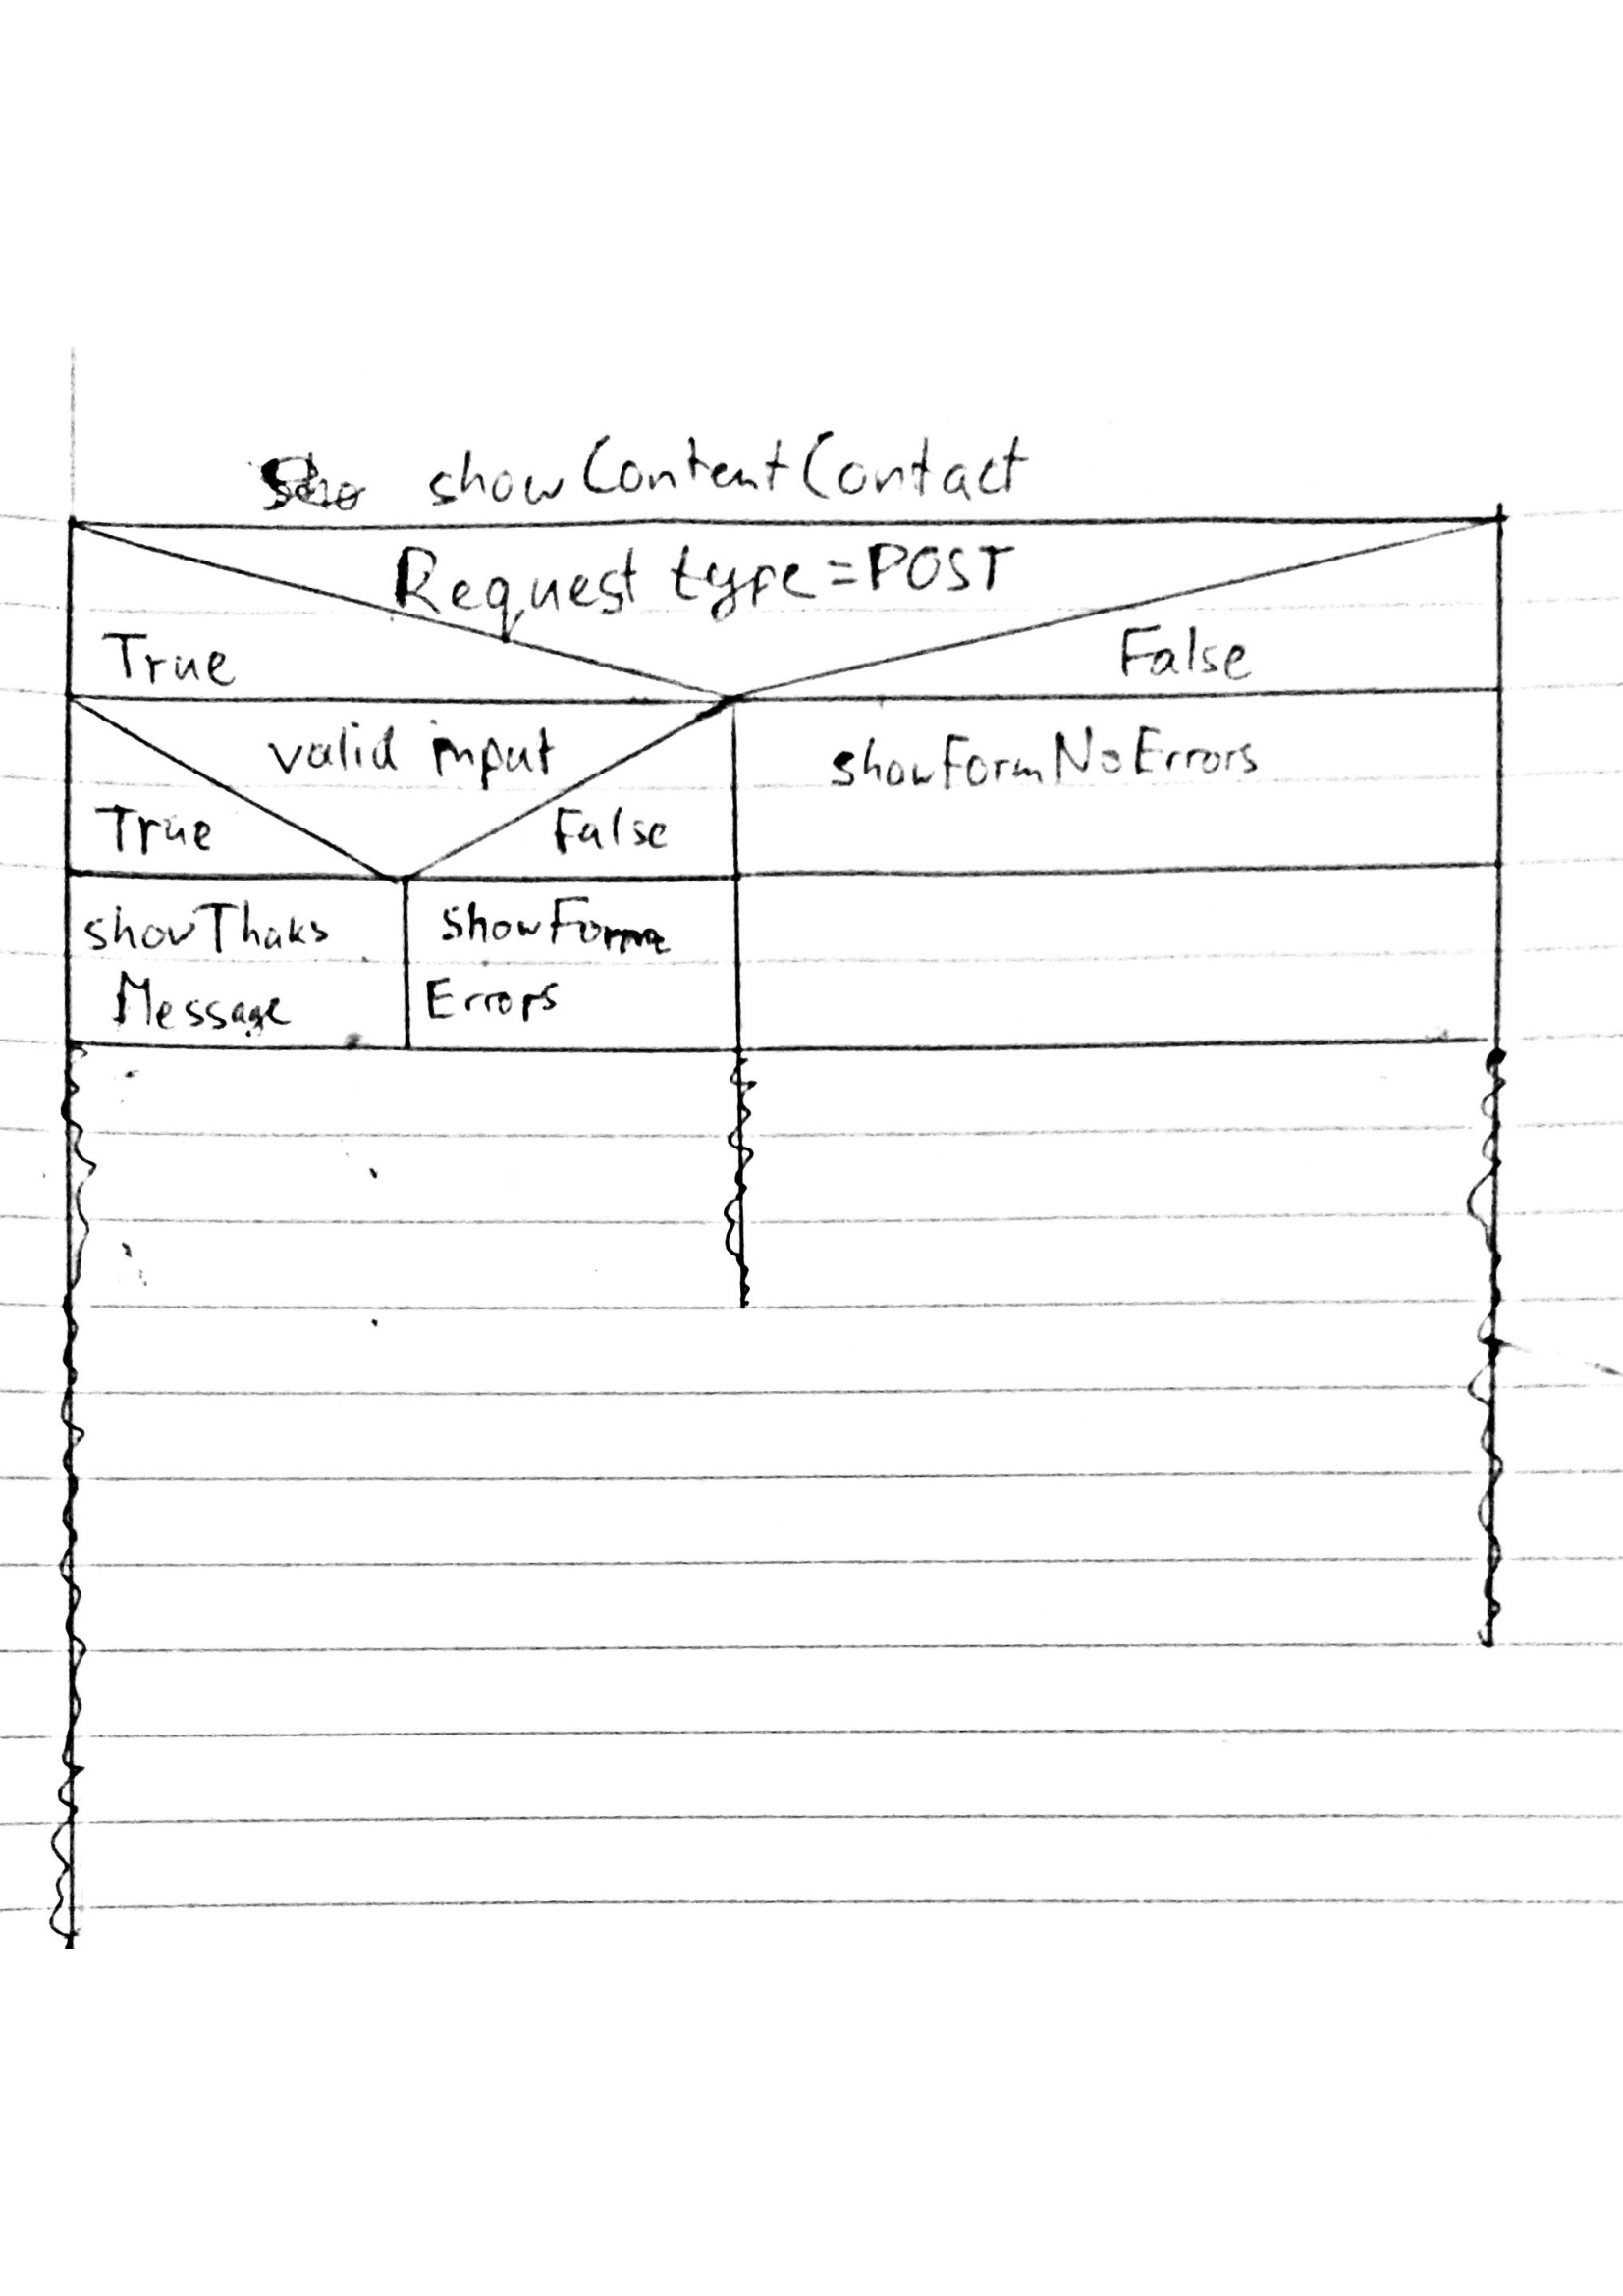 showContentContact
Request type=POST
True
False
valid input
showFormNoErrors
True
False
showThaks
Message
showForm
Errors